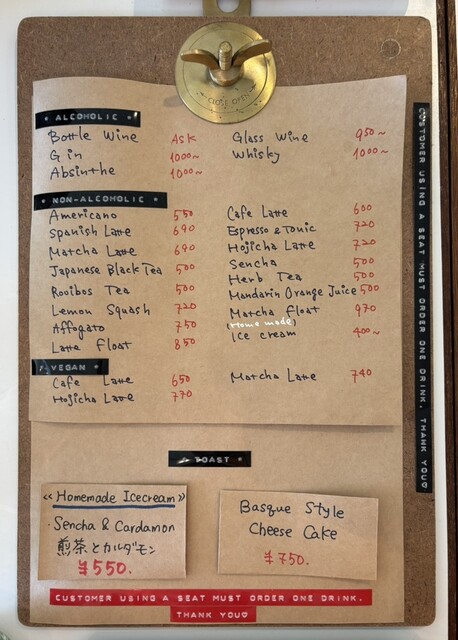 * ALCOHOLIC *
Bottle Wine ASK
Glass Wine 950~
Gin 1000~
Whisky 1000~
Absinthe 1000~
* NON-ALCOHOLIC *
Americano 550
Cafe Latte 600
Spanish Latte 690
Espresso & Tonic 720
Matcha Latte 690
Hojicha Latte 720
Japanese Black Tea 500
Sencha 500
Rooibos Tea 500
Herb Tea 500
Lemon Squash 720
Mandarin Orange Juice 500
Affogato 750
Matcha Float 970
Latte Float 850
(Home made)
Ice cream 400~
VEGAN *
Cafe Latte 650
Matcha Latte 740
Hojicha Latte 770
TOAST *
«Homemade Icecream»
·Sencha & Cardamon
煎茶とカルダモン
¥550.
Basque Style
Cheese Cake
¥750.
CUSTOMER USING A SEAT MUST ORDER ONE DRINK.
THANK YOU
CUSTOMER USING A SEAT MUST ORDER ONE DRINK. THANK YOU